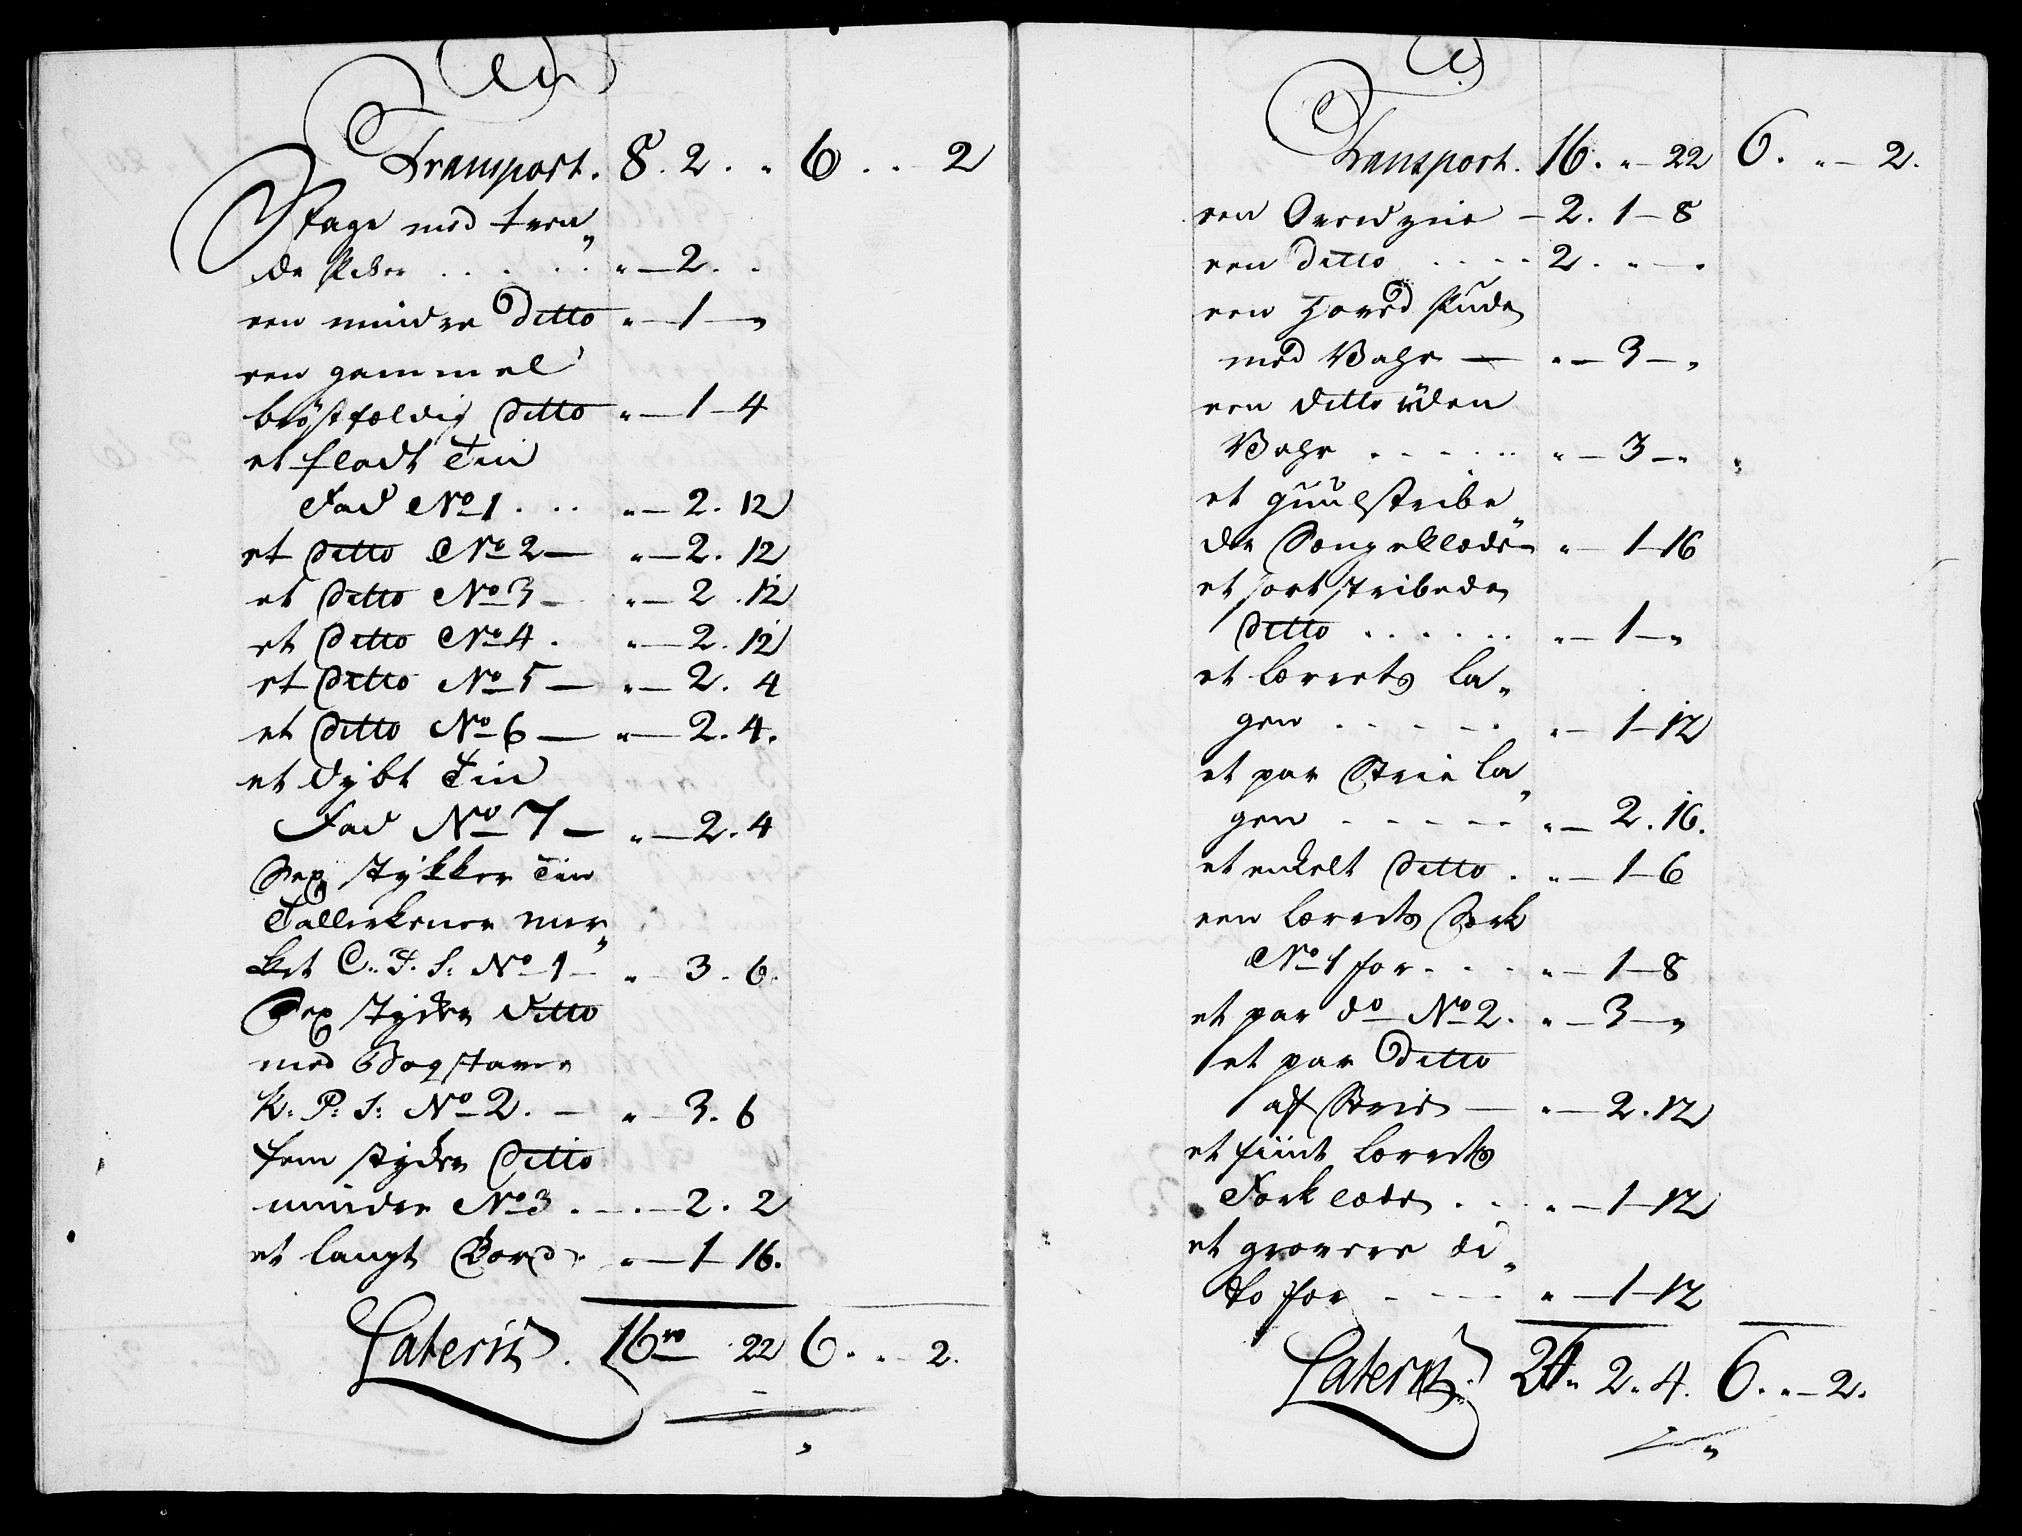 Transport. 8. 2. „ 6. . . 2
Stage med tven„
de piber . . . . . „ — 2. .
een mindre Ditto „ — 1 — „
een gammel
brøstfældig Ditto „ — 1 — 4
et fladt Tin
Fad No 1 . . . „ — 2. 12
et Ditto No 2 — „ — 2. 12
et Ditto No 3 — „ — 2. 12
et Ditto No 4 . „ — 2. 12
et Ditto No 5 — „ — 2. 4
et Ditto No 6 — „ — 2. 4.
et dybt Tin
Fad No 7 — „ — 2. 4
Sex stykker Tin
Tallerkener mer„
ket C. F. S: No 1 — „ 3. 6.
Sex stycker Ditto
med Bogstaver
K: P: S: No 2. — „ — 3. 6
fem stycker Ditto
mindre No 3 . . — 2. 2
et langt Bord. „ — 1 16.
Lateris. 16 rd 22 6. „ — 2.
Transport. 16. „ — 22 6. „ — 2.
een Overdyne — 2. 1 — 8
een Ditto . . . . 2. „ — „
een Hoved Pude
med Vahr — „ — 3 — „
een Ditto uden
Vahr . . . . . „ — 3 — „
et guulstribe„
de Sengeklæde „ — 1 — 16
et sortstribede
Ditto . . . . . . „ — 1 — „
et lærrets la„
gen . . . . . „ — 1 — 12
et par Strie la„
gen . . . . . „ — 2. 16.
et enkelt Ditto . „ — 1 — 6
een lærrets Særk
No 1 for . . . „ — 1 — 8
et par do No 2. „ — 3 — „
et par Ditto
af Strie — „ — 2. 12
et fiint lærrets
Forklæde . . . „ — 1 — 12
et grovere di„
to for . . . „ — 1 — 12
Lateris. 24„ 2„ 4. 6. „ — 2.